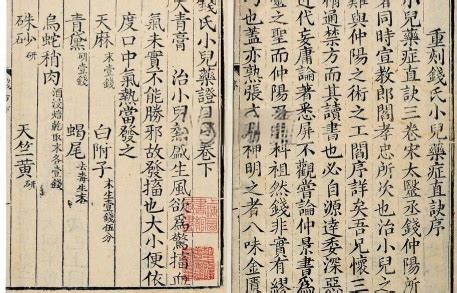 重刻錢氏小兒藥症直訣序
小兒藥症直訣三卷宋太醫丞錢仲陽所
者同時宣教郎閻孝忠所次也治小兒之
難與仲陽之術之工閻序詳矣吾兄懷三
稱通禁方而其讀書也必自源達委深惡
近代妄庸論著悉屏不觀嘗論仲景書為
靈之聖而仲陽 科祖然錢非實有繆
巧也蓋亦熟張氏 神明之者八味金匱
錢氏小兒藥證直訣卷下
大青膏 治小兒熱盛生風欲為驚搐血
氣未實不能勝邪故發搐也大小便依
度口中氣熱當發之
天麻末壹錢 白附子末生壹錢伍分
青黛研壹錢 蝎尾去毒生末
烏蛇稍肉酒浸焙乾取末各壹錢
硃砂研 天竺黃研